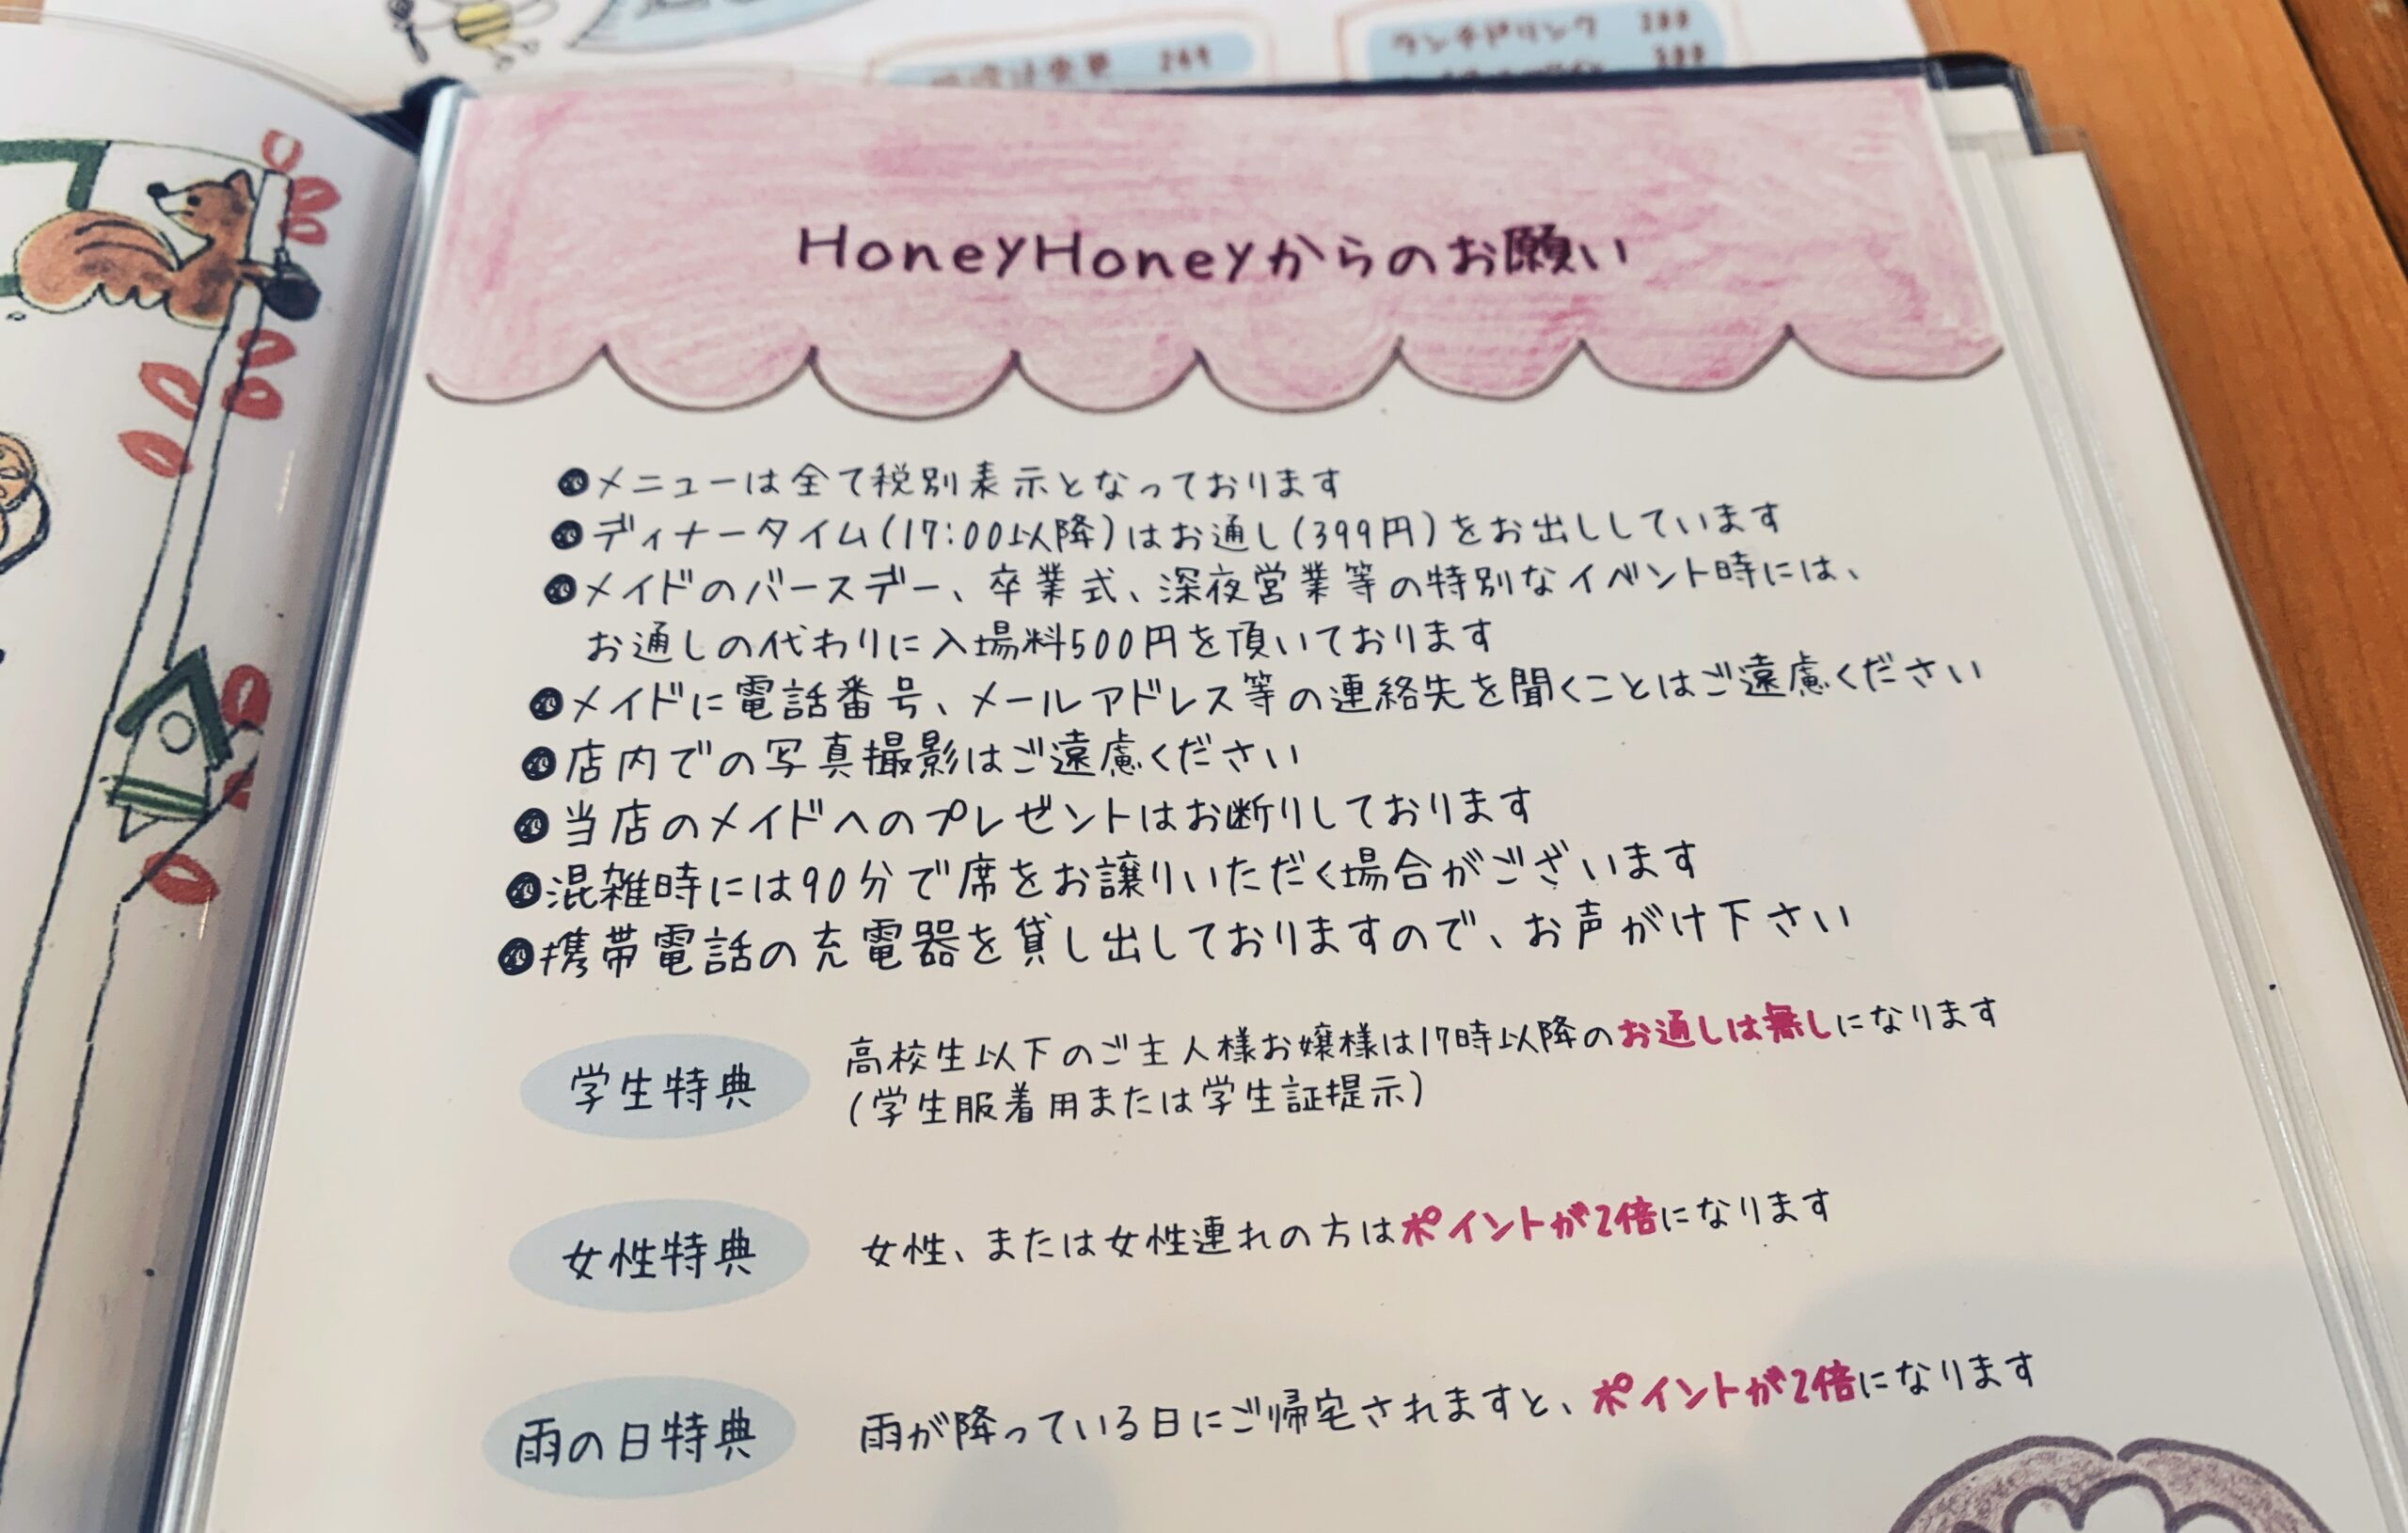 ランチドリンク 200
変更 269
HoneyHoneyからのお願い
メニューは全て税別表示となっております
ディナータイム(17:00以降)はお通し(399円)をお出ししています
メイドのバースデー、卒業式、深夜営業等の特別なイベント時には、
お通しの代わりに入場料500円を頂いております
メイドに電話番号、メールアドレス等の連絡先を聞くことはご遠慮ください
店内での写真撮影はご遠慮ください
当店のメイドへのプレゼントはお断りしております
混雑時には90分で席をお譲りいただく場合がございます
携帯電話の充電器を貸し出しておりますので、お声がけ下さい
学生特典
高校生以下のご主人様お嬢様は17時以降のお通しは無しになります
(学生服着用または学生証提示)
女性特典
女性、または女性連れの方はポイントが2倍になります
雨の日特典
雨が降っている日にご帰宅されますと、ポイントが2倍になります